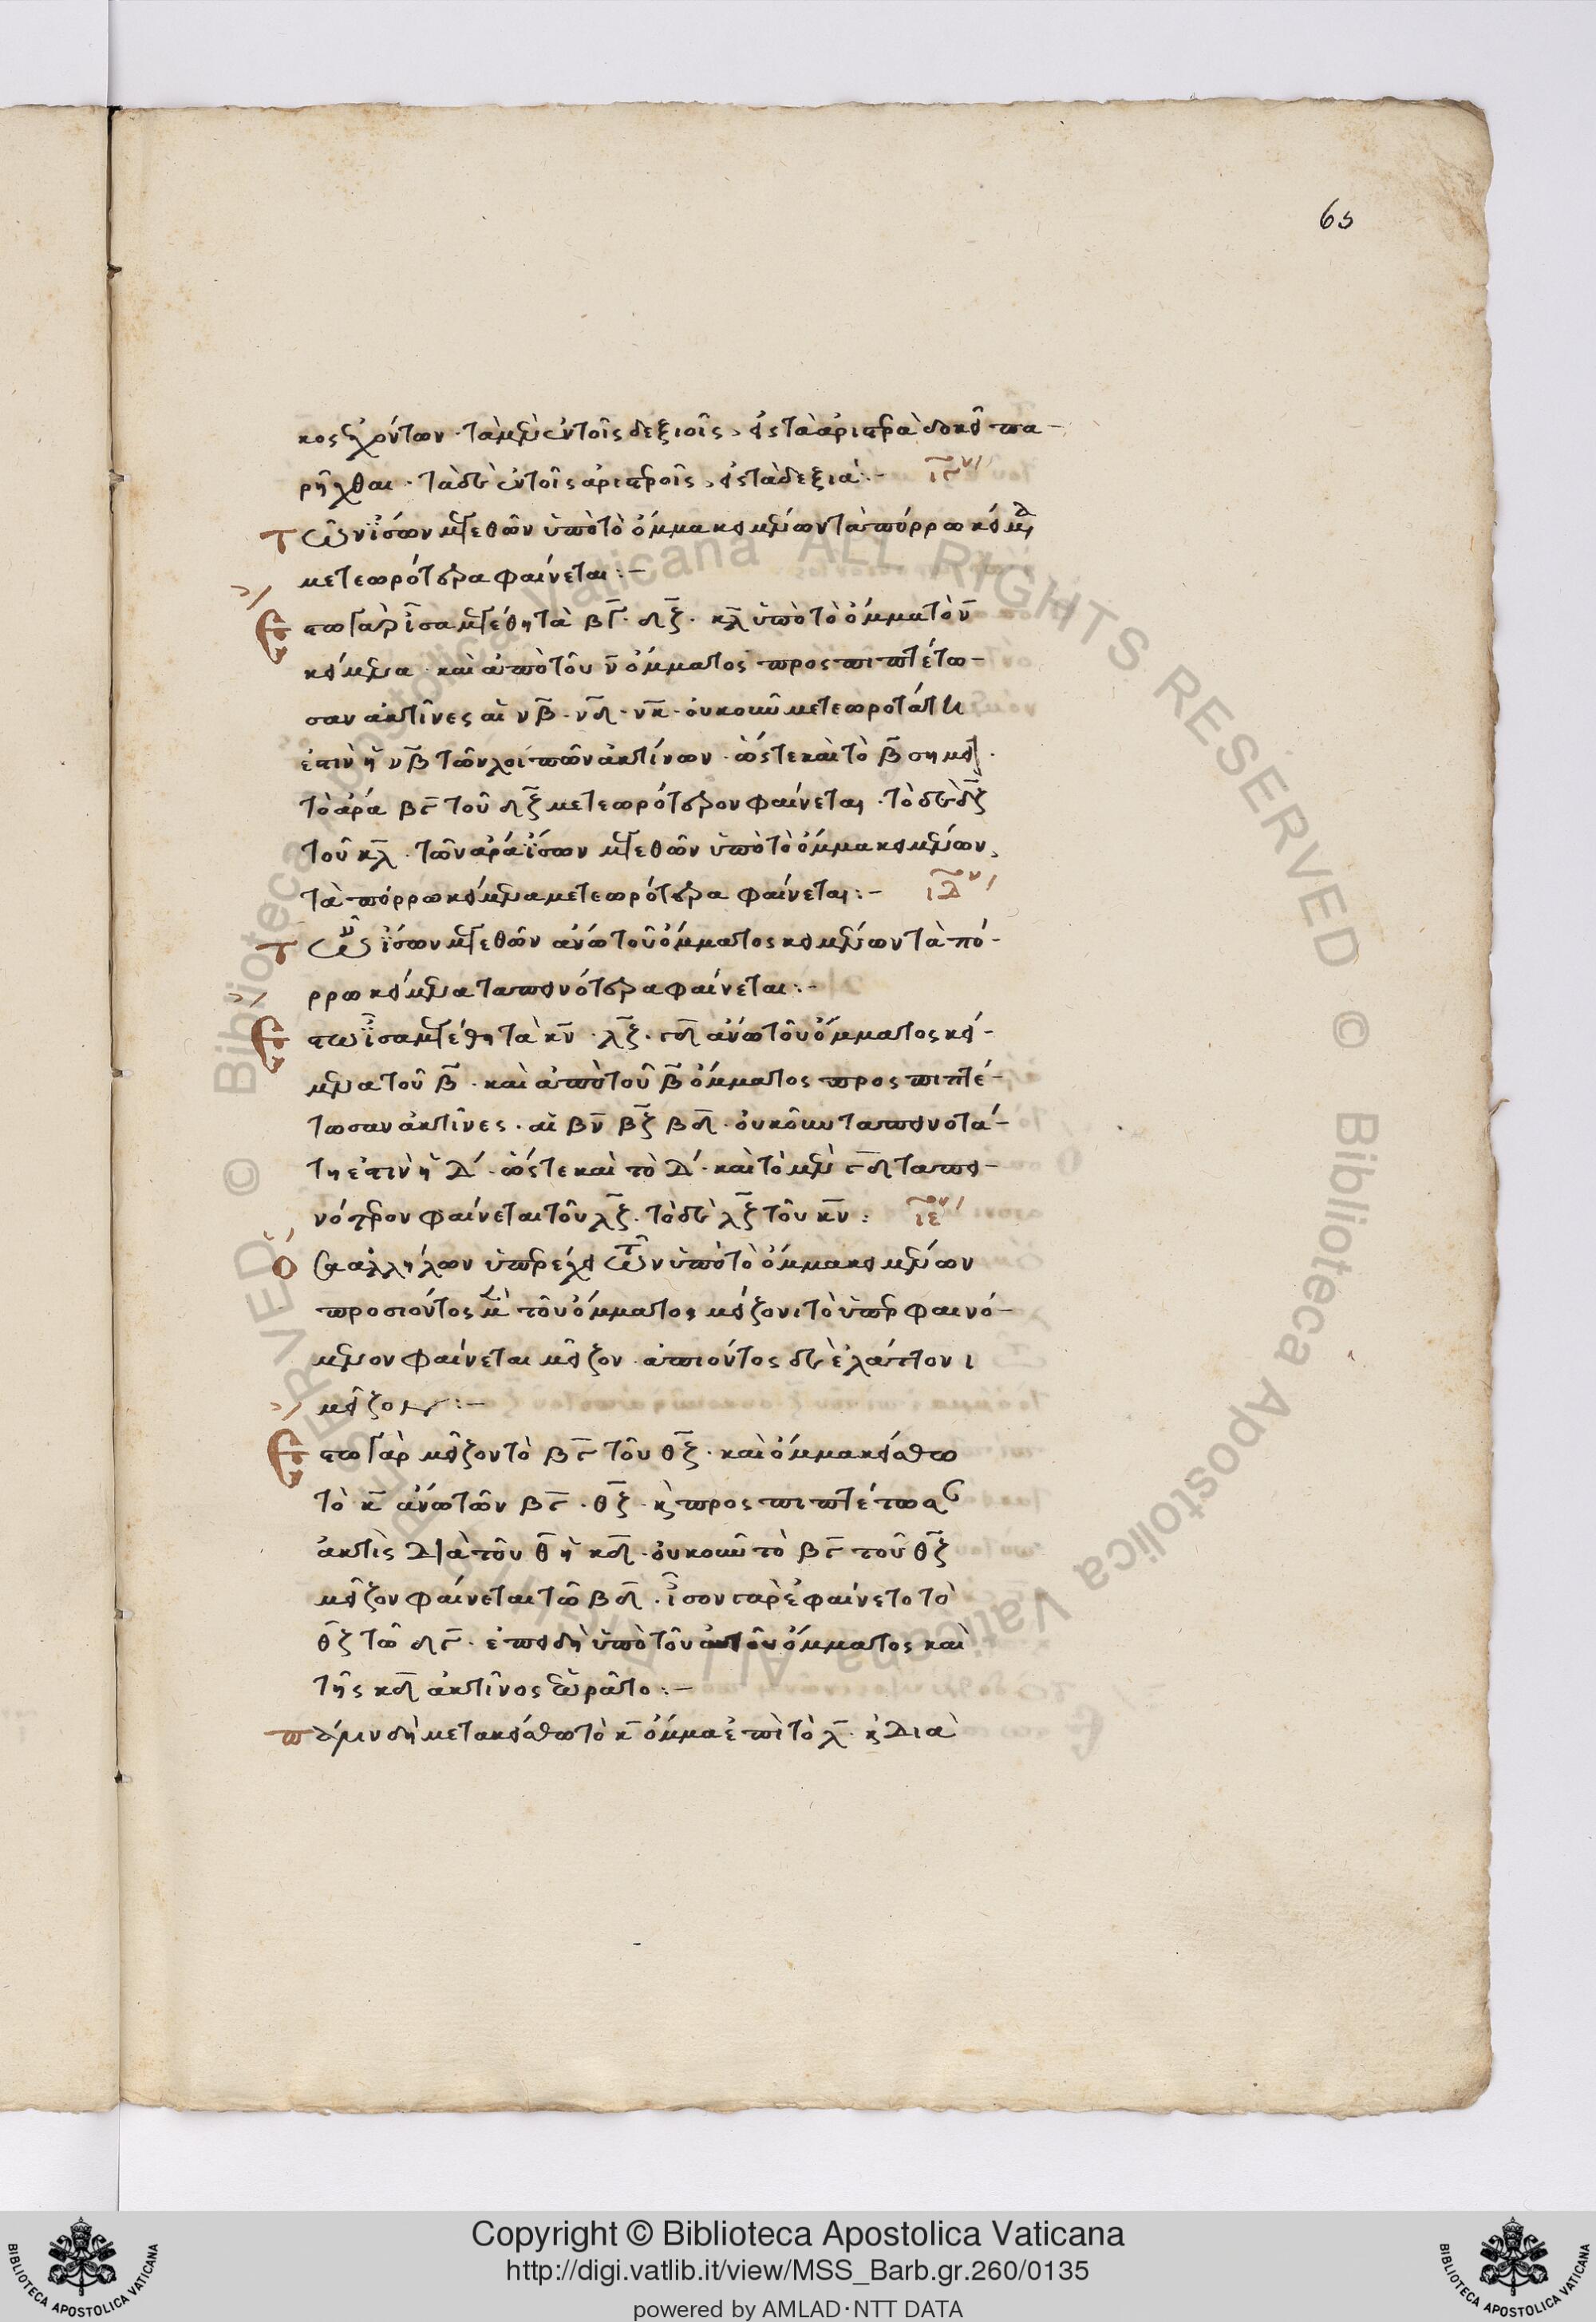 65
κος ἐχόντων · τὰ μὲν ἐν τοῖς δεξιοῖς, εἰς τὰ ἀριστερὰ δοκεῖ πα-
ρῆχθαι · τὰ δὲ ἐν τοῖς ἀριστεροῖς, εἰς τὰ δεξιά :-
Τῶν ἴσων μεγεθῶν ὑπὸ τὸ ὄμμα κειμένων τὰ πόρρω κείμενα
μετεωρότερα φαίνεται :-
Ἔστω γὰρ ἴσα μεγέθη τὰ βγ · δζ · κλ ὑπὸ τὸ ὄμμα τὸ ν
κείμενα · καὶ ἀπὸ τοῦ ν ὄμματος προσπιπτέτω-
σαν ἀκτῖνες αἱ νβ · νδ · νκ · οὐκοῦν μετεωροτάτη
ἐστὶν ἡ νβ τῶν λοιπῶν ἀκτίνων · ὥστε καὶ τὸ β σημεῖον ·
τὸ ἄρα βγ τοῦ δζ μετεωρότερον φαίνεται · τὸ δὲ δζ
τοῦ κλ · τῶν ἄρα ἴσων μεγεθῶν ὑπὸ τὸ ὄμμα κειμένων,
τὰ πόρρω κείμενα μετεωρότερα φαίνεται :- ιδ
Τῶν ἴσων μεγεθῶν ἄνω τοῦ ὄμματος κειμένων τὰ πό-
ρρω κείμενα ταπεινότερα φαίνεται :-
Ἔστω ἴσα μεγέθη τὰ κν · λζ · γδ ἄνω τοῦ ὄμματος κεί-
μενα τοῦ β · καὶ ἀπὸ τοῦ β ὄμματος προσπιπτέ-
τωσαν ἀκτῖνες · αἱ βν βζ βδ · οὐκοῦν ταπεινοτά-
τη ἐστὶν ἡ Δ · ὥστε καὶ τὸ Δ · καὶ τὸ μὲν γδ ταπει-
νότερον φαίνεται τοῦ λζ · τὸ δὲ λζ τοῦ κν : ιε
Ὅσα ἀλλήλων ὑπερέχει τῶν ὑπὸ τὸ ὄμμα κειμένων
προσιόντος μὲν τοῦ ὄμματος μείζονι τὸ ὑπερφαινό-
μενον φαίνεται μεῖζον · ἀπιόντος δὲ ἐλάττονι
μεῖζον :-
Ἔστω γὰρ μεῖζον τὸ βγ τοῦ θζ · καὶ ὄμμα κείσθω
τὸ κ ἄνω τῶν βγ · θζ · καὶ προσπιπτέτω
ἀκτὶς διὰ τοῦ θ ἡ κδ · οὐκοῦν τὸ βγ τοῦ θζ
μεῖζον φαίνεται τῷ βδ · ἴσον γὰρ ἐφαίνετο τὸ
θζ τῷ δγ · ἐπειδὴ ὑπὸ τοῦ αὐτοῦ ὄμματος καὶ
τῆς κδ ἀκτῖνος ἑωρᾶτο :-
Πάλιν δὴ μετακείσθω τὸ κ ὄμμα ἐπὶ τὸ λ · καὶ διὰ
© Biblioteca Apostolica Vaticana ALL RIGHTS RESERVED © Biblioteca Apostolica Vaticana ALL RIGHTS RESERVED
BIBLIOTECA APOSTOLICA VATICANA
Copyright © Biblioteca Apostolica Vaticana
http://digi.vatlib.it/view/MSS_Barb.gr.260/0135
powered by AMLAD·NTT DATA
BIBLIOTECA APOSTOLICA VATICANA